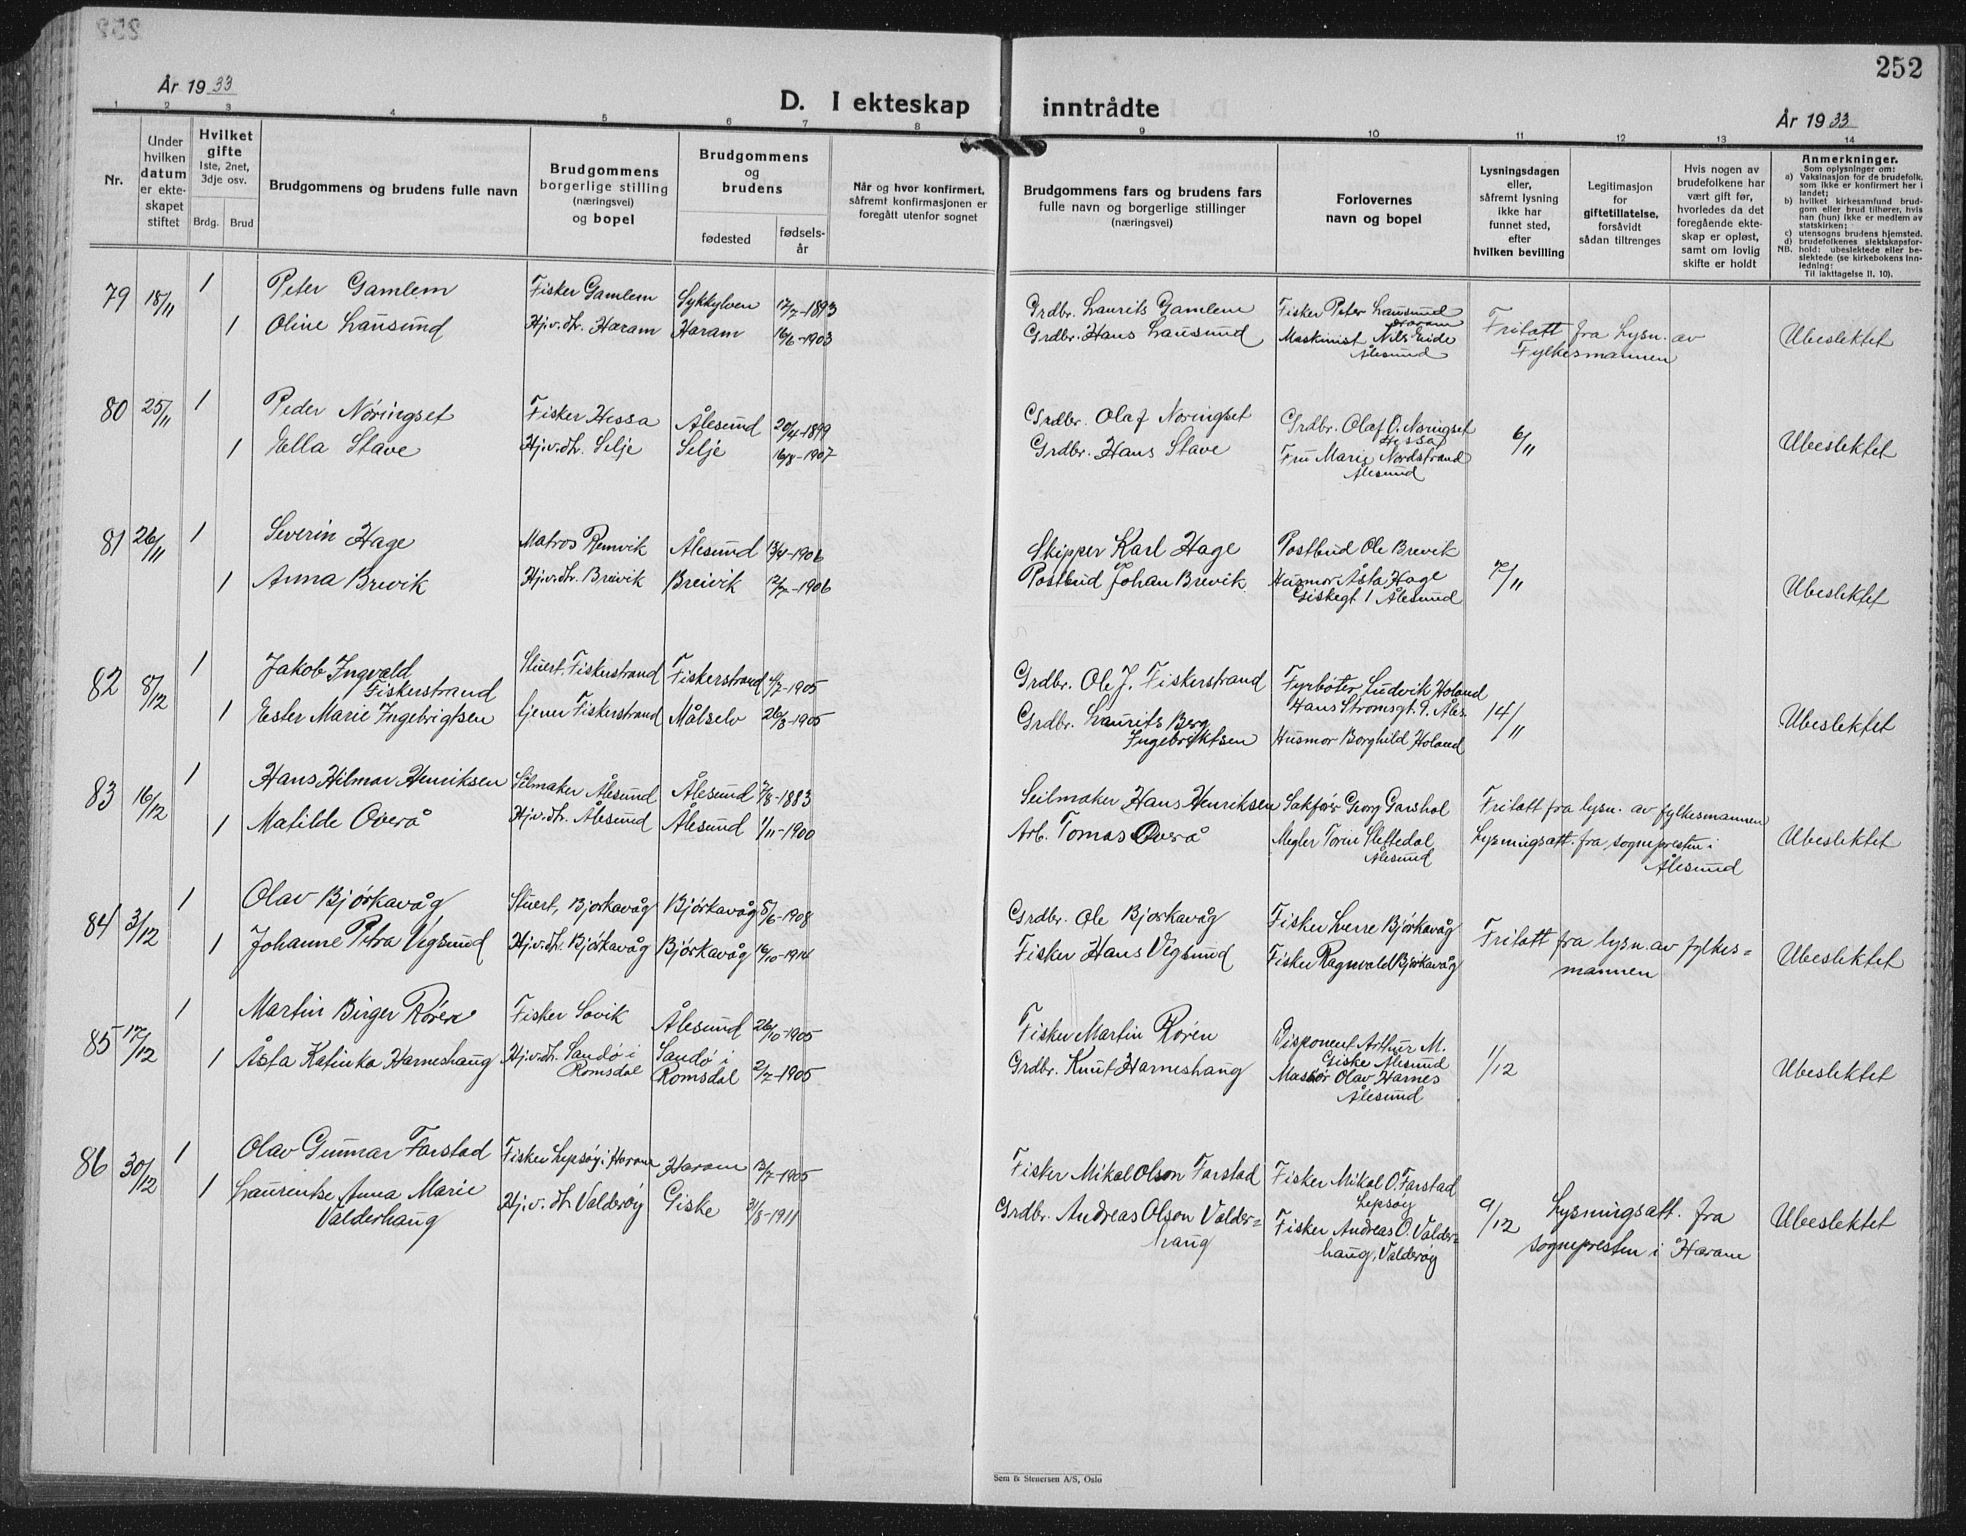 252
År 1933
D. I ekteskap inntrådte
År 1933
1 2 3 4 5 6 7 8 9 10 11 12 13 14
Nr.
Under hvilken datum er ekteskapet stiftet
Hvilket gifte 1ste, 2net, 3dje osv.
Brdg. Brud
Brudgommens og brudens fulle navn
Brudgommens borgerlige stilling (næringsvei) og bopel
Brudgommens og brudens
fødested
fødselsår
Når og hvor konfirmert, såfremt konfirmasjonen er foregått utenfor sognet
Brudgommens fars og brudens fars fulle navn og borgerlige stillinger (næringsvei)
Forlovernes navn og bopel
Lysningsdagen eller, såfremt lysning ikke har funnet sted, efter hvilken bevilling
Legitimasjon for giftetillatelse, forsåvidt sådan tiltrenges
Hvis nogen av brudefolkene har vært gift før, hvorledes da det foregående ekteskap er opløst, samt om lovlig skifte er holdt
Anmerkninger.
Som oplysninger om:
a) Vaksinasjon for de brudefolk, som ikke er konfirmert her i landet;
b) hvilket kirkesamfund brudgom eller brud tilhører, hvis han (hun) ikke er medlem av statskirken;
c) utensogns brudens hjemsted.
d) brudefolkenes slektskapsforhold: ubeslektede eller beslektede (se kirkebokens Innledning:
NB. Til iakttagelse II. 10).
79 18/11 1 Peter Gamlem Fisker Gamlem Sykkylven 17/7-1893 Grdbr. Laurits Gamlem Fisker Peter Lausund Haram
1 Oline Lausund Hj.v.dtr. Haram Haram 16/6-1903 Grdbr. Hans Lausund Maskinist Nils Eide Ålesund Fritatt fra lysn. av Fylkesmannen Ubeslektet
80 25/11 1 Peder Nøringset Fisker Hessa Ålesund 20/4-1899 Grdbr. Olaf Nøringset Grdbr. Olaf O. Nøringset Hessa 6/11
1 Ella Stave Hj.v.dtr. Selje Selje 16/8-1907 Grdbr. Hans Stave Fru Marie Nordstrand Ålesund Ubeslektet
81 26/11 1 Severin Hage Matros Remvik Ålesund 13/4-1906 Skipper Karl Hage Postbud Ole Brevik 7/11
1 Anna Breivik Hj.v.dtr. Breivik Breivik 12/7-1906 Postbud Johan Brevik Husmor Åsta Hage Giskegt 1 Ålesund Ubeslektet
82 8/12 1 Jakob Ingvald Fiskerstrand Stuert, Fiskerstrand Fiskerstrand 4/7-1905 Grdbr. Ole J. Fiskerstrand Fyrbøter Ludvik Holand Hans Strømsgt. 9. Åles. 14/11
1 Ester Marie Ingebrigtsen tjener Fiskerstrand Målselv 26/8-1905 Grdbr. Laurits Berg Ingebriktsen Husmor Borghild Holand Ubeslektet
83 16/12 1 Hans Hilmar Henriksen Seilmaker Ålesund Ålesund 7/8-1883 Seilmaker Hans Henriksen Sakfører Georg Garshol Fritatt fra lysn. av fylkesmannen
1 Matilde Overå Hj.v.dtr. Ålesund Ålesund 1/11-1900 Arb. Tomas Overå Megler Ålesund Lysningsatt. fra sognepresten i Ålesund Ubeslektet
84 3/12 1 Olav Bjørkavåg Stuert, Bjørkavåg Bjørkavåg 8/6-1908 Grdbr. Ole Bjørkavåg Fisker Sverre Bjørkavåg
1 Johanne Petra Vigsund Hj.v.dtr. Bjørkavåg Bjørkavåg 16/10-1914 Fisker Hans Vigsund Fisker Ragnvald Bjørkavåg Fritatt fra lysn. av fylkesmannen Ubeslektet
85 17/12 1 Martin Birger Røren Fisker Søvik Ålesund 26/10-1905 Fisker Martin Røren Disponent Arthur M. Giske Ålesund 1/12
1 Åsta Katinka Harneshaug Hj.v.dtr. Sandø i Romsdal Sandø i Romsdal 2/7-1905 Grdbr. Knut Harneshaug Massør Olav Harnes Ålesund Ubeslektet
86 30/12 1 Olav Gunnar Farstad Fisker Lepsøy i Haram Haram 13/7-1905 Fisker Mikal Olson Farstad Fisker Mikal O. Farstad Lepsøy 9/12
1 Laurentse Anna Marie Valderhaug Hj.v.dtr Valderøy Giske 31/8-1911 Grdbr. Andreas Olson Valderhaug Fisker Andreas O. Valderhaug, Valderøy Lysningsatt. fra sognepresten i Haram Ubeslektet
Sem & Stenersen A/S, Oslo